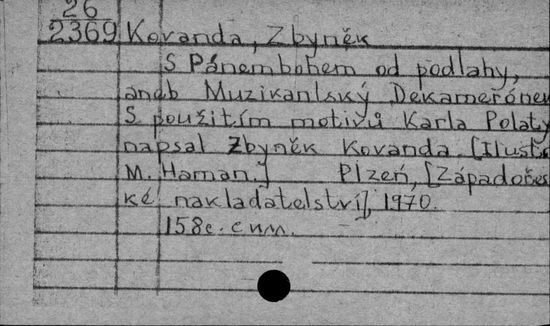 26
2369 Kovanda, Zbyněk
S Pánembohem od podlahy,
aneb Muzikantský Dekamerónek
S použitím motivů Karla Polaty
napsal Zbyněk Kovanda. [Ilustr.
M. Haman.] Plzeń, [Západočes
ké nakladatelství], 1970.
158c. с илл.